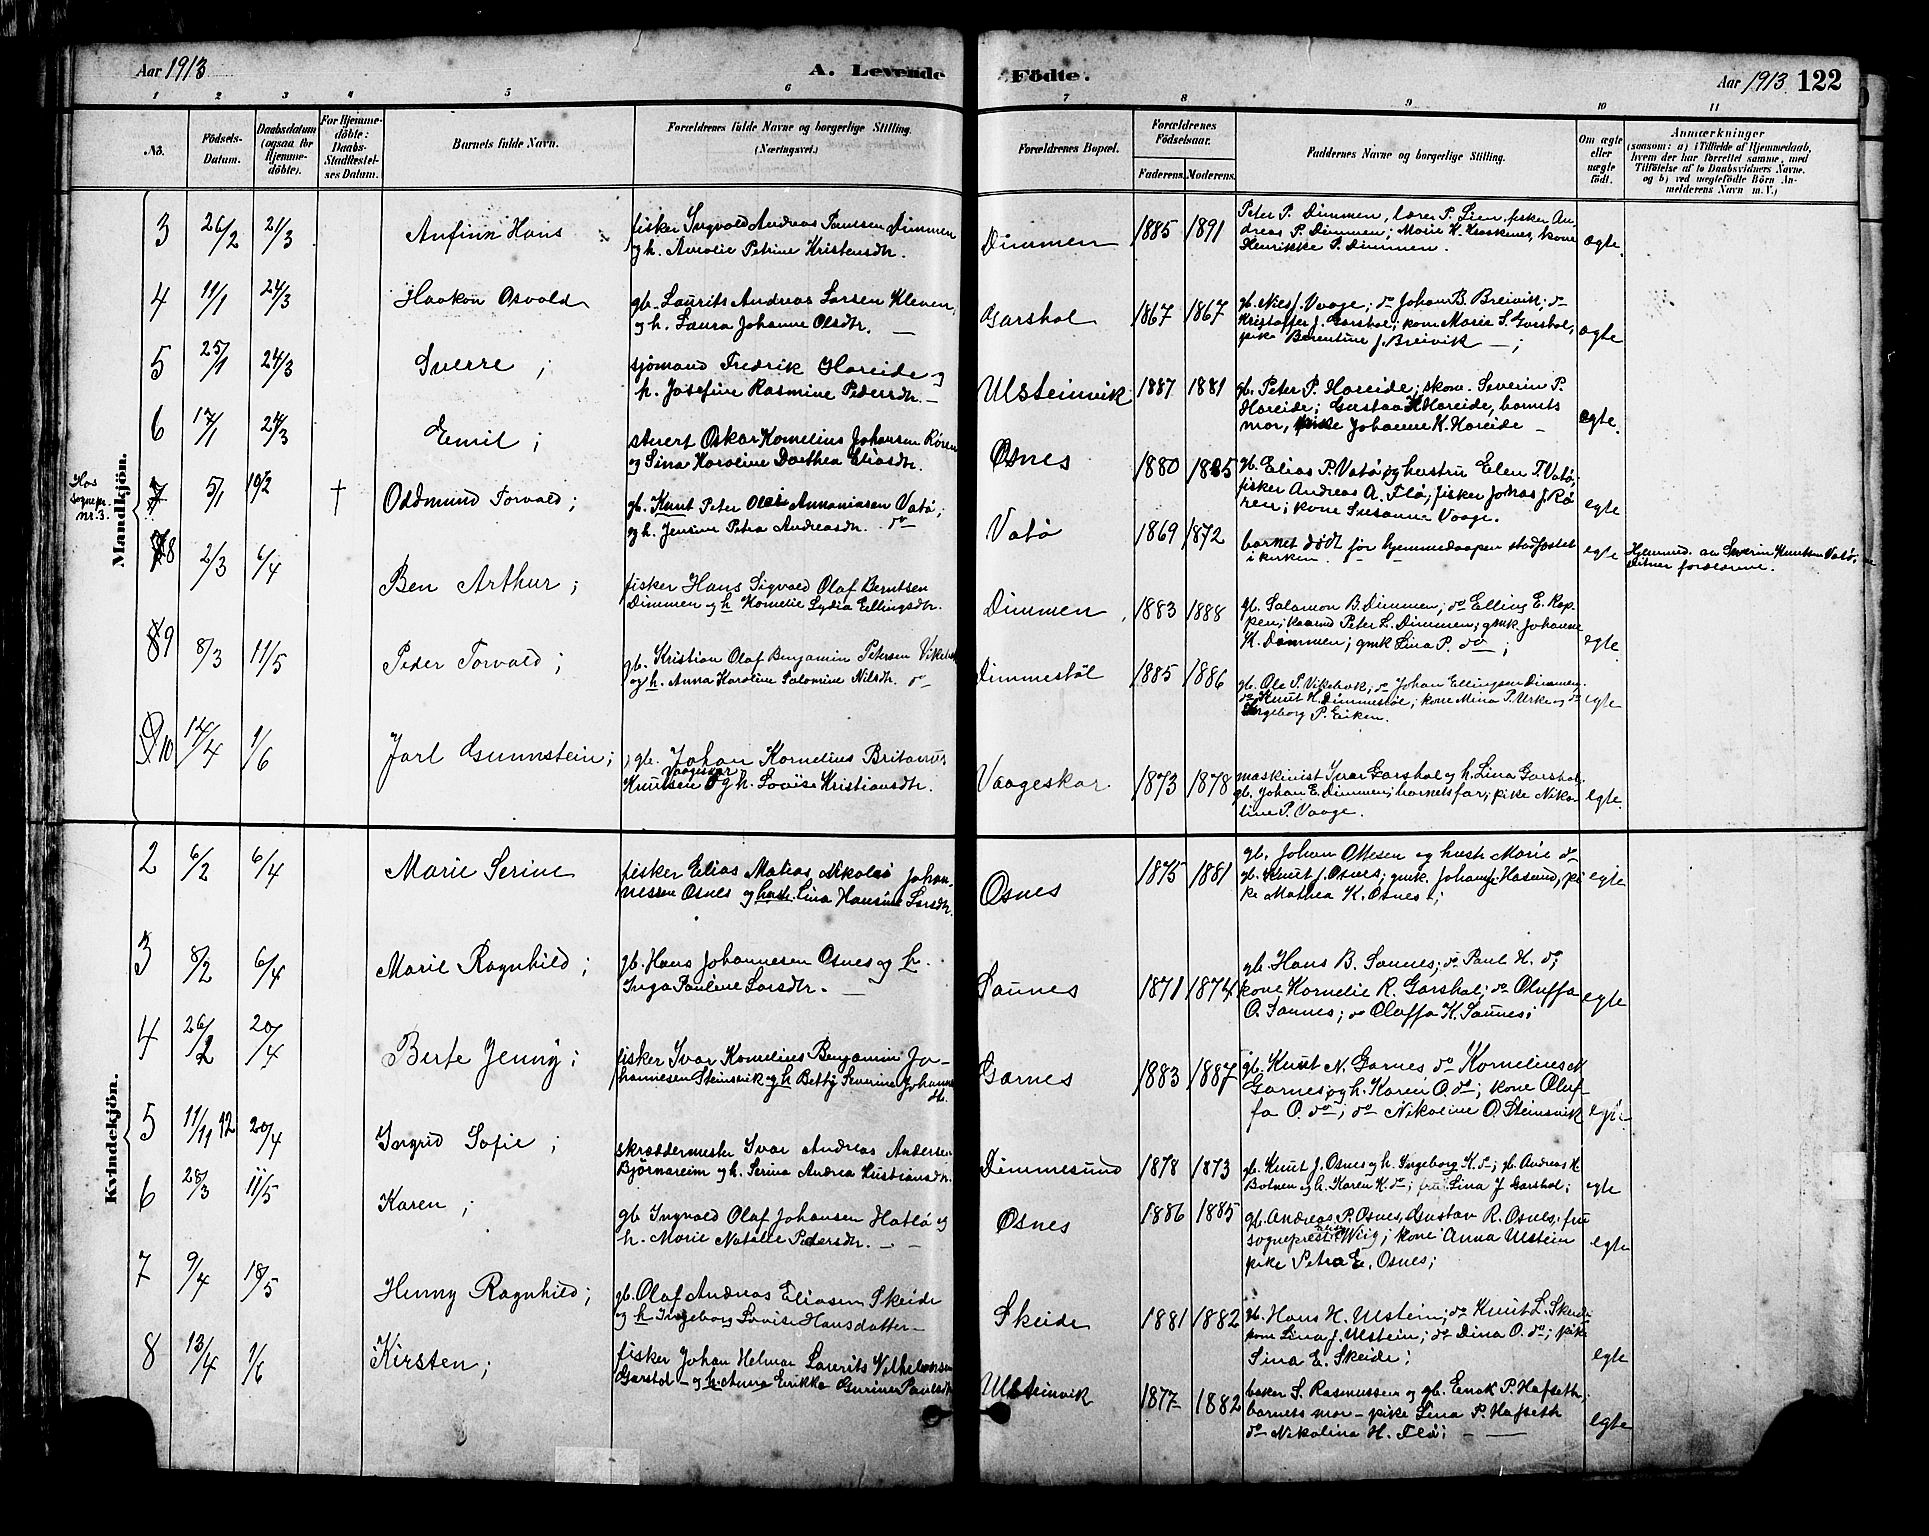 Aar 1913
A. Levende
Födte.
Aar 1913. 122
1 2 3 4 5 6 7 8 9 10 11
No.
Födsels-Datum.
Daabsdatum (ogsaa for Hjemme-döbte).
For Hjemme-döbte: Daabs-Stadfæstel-ses Datum.
Barnets fulde Navn.
Forældrenes fulde Navne og borgerlige Stilling.
(Næringsvei.)
Forældrenes Bopæl.
Forældrenes Födselsaar.
Faderens. Moderens.
Faddernes Navne og borgerlige Stilling.
Om ægte eller uægte födt.
Anmærkninger
(saasom: a) i Tilfælde af Hjemmedaab,
hvem der har forrettet samme, med
Tilföielse af to Daabsvidners Navne.
og b) ved uægtefödte Börn An-
melderens Navn m. V.)
Mandkjön.
3 26/2 21/3 Anfinn Hans
fisker Ingvald Andreas Paulsen Dimmen
og h. Amalie Petrine Kristensdtr.
Dimmen 1885 1891
Peter P. Dimmen, lærer P. Lien, fisker An-
dreas P. Dimmen; Marie K. Kraakenes, kone
Henrikke P. Dimmen.
ægte
4 11/1 24/3 Haakon Osvald
gb. Laurits Andreas Larsen Kleven,
og h. Laura Johanne Olsdtr. —
Garshol 1867 1867
gb. Nils J. Vaage; do Johan B. Breivik; do
Kristoffer J. Garshol; kone Marie S. Garshol,
pike Berentine J. Breivik —;
ægte
5 25/1 24/3 Sverre ;
sjømand Fredrik Hareide og
h. Josefine Rasmine Pedersdtr. —
Ulsteinvik 1887 1881
gb. Peter P. Hareide; skom. Severin P.
Hareide; Gustav K. Hareide, barnets
mor, pike Johanne K. Hareide —
egte.
6 17/1 24/3 Emil ;
stuert Oskar Kornelius Johansen Røren
og Sina Karoline Dorthea Eliasdtr.
Osnes 1880 1885
gb. Elias P. Vatø og hustru Elen T. Vatø;
fisker Andreas A. Flø; fisker Johas J. Rø
ren; kone Susanne Vaage.
egte
Hos
sognepr.
nr. 3.
7 5/1 19/2 † Oddmund Torvald;
gb. Knut Peter Olai Annaniassen Vatø;
og h. Jensine Petra Andreasdtr. do
Vatø 1869 1872
barnet dødt før hjemmedaapen stadfæstet
i kirken.
egte
Hjemmed. av Severin Knutsen Vatø,
Vitner forældrene.
8 2/3 6/4 Ben Arthur ;
fisker Hans Sigvald Olaf Berntsen
Dimmen og h Kornelie Lydia Ellingsdtr.
Dimmen 1883 1888
gb. Salamon B. Dimmen; do Elling E. Rep-
pen; kaarmd Peter L. Dimmen; gmk Johanne
K. Dimmen; gmk Lina P. do ;
egte.
9 8/3 11/5 Peder Torvald ;
gb. Kristian Olaf Benjamin Petersen Vikeb
og h. Anna Karoline Salomine Nilsdtr. do
Dimmestøl 1885 1886
gb. Ole P. Vikebak; do Johan Ellingsen Dimmen;
do Knut K. Dimmestøl; kone Mina P. Urke og do
Ingeborg P. Eiken.
egte
10 14/4 1/6 Jarl Gunnstein;
gb. Johan Kornelius Britanus
Knutsen Vaageskar og h. Lovise Kristiansdtr.
Vaageskar 1873 1878
maskinist Ivar Garshol og h. Lina Garshol
gb. Johan E. Dimmen; barnets far; pike Niko-
line P. Vaage.
egte.
Kvindekjön.
2 6/2 6/4 Marie Serine
fisker Elias Matias Nikolai Johan-
nessen Osnes og hustr. Lina Hansine Larsdtr.
Osnes 1875 1881
gb. Johan Ottesen og hustr Marie do
gb. Knut J. Osnes; gmk. Johan J. Hasund, pi
ke Mathea K. Osnes;
egte
3 8/2 6/4 Marie Ragnhild ;
gb. Hans Johannesen Osnes og h.
Inga Pauline Larsdtr. —
Saunes 1871 1874
gb. Hans B. Saunes; do Paul H. do;
kone Kornelie R. Garshol; do Oluffa
O. Saunes; do Oluffa K. Saunes;
egte
4 26/2 20/4 Berte Jenny ;
fisker Ivar Kornelius Benjamin Jo-
hannesen Steinsvik og h Betty Severine Johannes
dtr.
Garnes 1883 1887
gb. Knut N. Garnes do Kornelius N
Garnes og h. Karen O. do; kone Oluf-
fa O. do; do Nikoline O. Steinsvik
egte
5 11/11 12 20/4 Ingrid Sofie ;
skræddermester Ivar Andreas Andersen
Bjørnareim og h. Serina Andrea Kristiansdtr.
Dimmesund 1878 1873
gb. Knut J. Osnes og h. Ingeborg K. do; gb. Andreas K
Botnen og h. Karen K. do; frk Lina J Garshol;
egte
6 28/3 11/5 Karen ;
gb Ingvald Olaf Johansen Hatlø og
h. Marie Natalie Pedersdtr. —
Osnes 1886 1885
gb. Andreas P. Osnes, Gustav R. Osnes, fru
sogneprest Wiig; kone Anna Ulstein
pike Petra E. Osnes;
egte
7 9/4 18/5 Henny Ragnhild;
gb. Olaf Andreas Eliasen Skeide
og h Ingeborg Lovise Hansdatter —
Skeide 1881 1882
gb. Hans H. Ulstein; do Knut L. Skeide
kone Lina J. Ulstein; do Dina O. do; pike
Sina E. Skeide;
egte
8 13/4 1/6 Kirsten ;
fisker Johan Helmar Laurits Vilhelmsen
Garshol — og h. Anna Erikka Gurine Paulsdtr
Ulsteinvik 1877 1882
baker S. Rasmussen og gb. Enok P. Hafseth;
barnets mor — pike Lina P. Hafseth
do Nikolina H. Flø; —
egte